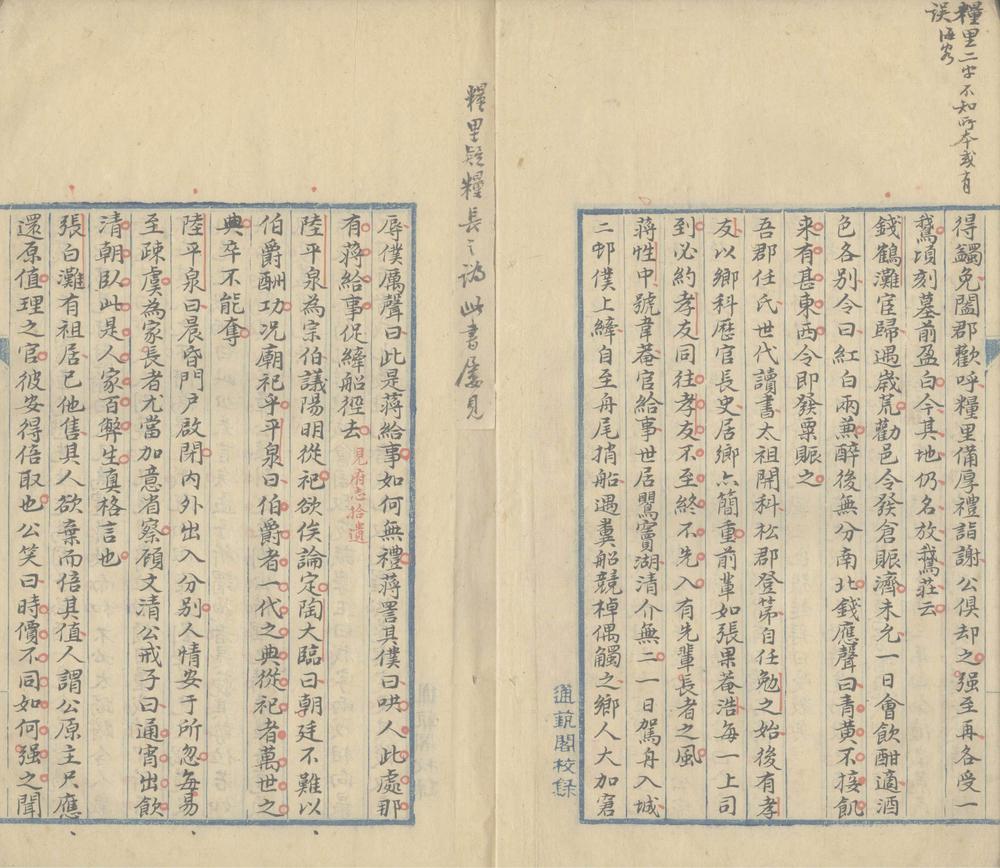 糧里二字不知所本或有
誤 海客
得蠲免闔郡歡呼糧里備厚禮詣謝公俱却之强至再各受一
鵞頃刻墓前盈白今其地仍名放鵞莊云
錢鶴灘宦歸遇歲荒勸邑令發倉賑濟未允一日會飲酣適酒
色各別令曰紅白兩兼醉後無分南北錢應聲曰青黃不接飢
来有甚東西令即發粟賑之
吾郡任氏世代讀書太祖開科松郡登第自任勉之始後有孝
友以鄉科歷官長史居鄉亦簡重前輩如張果菴浩每一上司
到必約孝友同往孝友不至終不先入有先輩長者之風
蔣性中號韋菴官給事世居鸎竇湖清介無二一日駕舟入城
二邨僕上縴自至舟尾捎船遇糞船競棹偶觸之鄉人大加窘
通藝閣校錄
糧里疑糧長之譌此書屢見
辱僕厲聲曰此是蔣給事如何無禮蔣詈其僕曰哄人此處那
有蔣給事促縴船徑去 見府志拾遺
陸平泉為宗伯議陽明從祀欲俟論定陶大臨曰朝廷不難以
伯爵酬功况廟祀乎平泉曰伯爵者一代之典從祀者萬世之
典卒不能奪
陸平泉曰晨昏門戶啟閉内外出入分別人情安于所忽每易
至疎虞為家長者尤當加意省察顧文清公戒子曰通宵出飲
清朝臥此是人家百弊生真格言也
張白灘有祖居已他售其人欲棄而倍其值人謂公原主只應
還原值理之官彼安得倍取也公笑曰時價不同如何强之聞